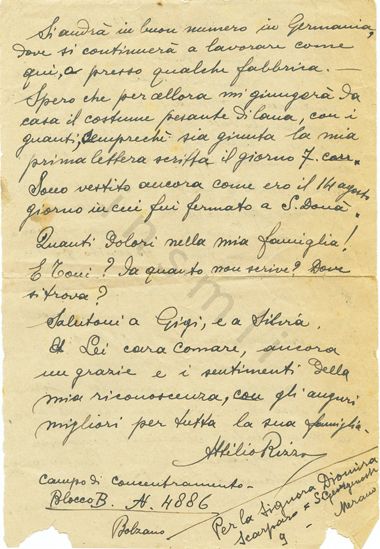 Si andrà in buon numero in Germania,
dove si continuerà a lavorare come
qui, o presso qualche fabbrica. —
Spero che per allora mi giungerà da
casa il costume pesante di lana, con i
guanti, sempreché sia giunta la mia
prima lettera scritta il giorno 7. corr.
Sono vestito ancora come ero il 14 agosto
giorno in cui fui fermato a S. Donà.
Quanti dolori nella mia famiglia!
E Toni? Da quanto non scrive? Dove
si trova?
Saluton a Gigi, e a Silvia.
A Lei cara Comare, ancora
un grazie e i sentimenti della
mia riconoscenza, con gli auguri
migliori per tutta la sua famiglia.
Attilio Rizzo
Campo di concentramento -
Blocco B. N. 4886
Bolzano
Per la Signora Dionira
Scarparo
Merano